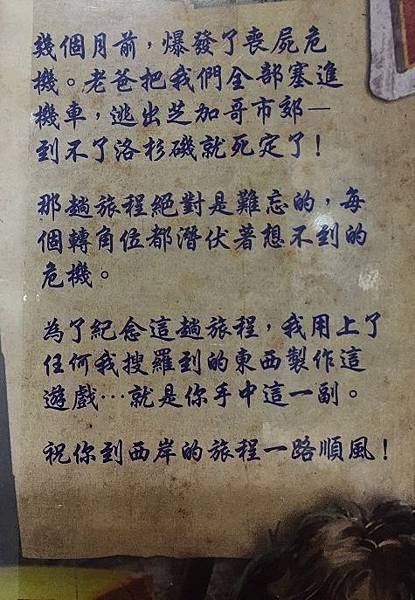 幾個月前，爆發了喪屍危
機。老爸把我們全部塞進
機車，逃出芝加哥市郊—
到不了洛杉磯就死定了！
那趟旅程絕對是難忘的，每
個轉角位都潛伏著想不到的
危機。
為了紀念這趟旅程，我用上了
任何我搜羅到的東西製作這
遊戲⋯就是你手中這一副。
祝你到西岸的旅程一路順風！